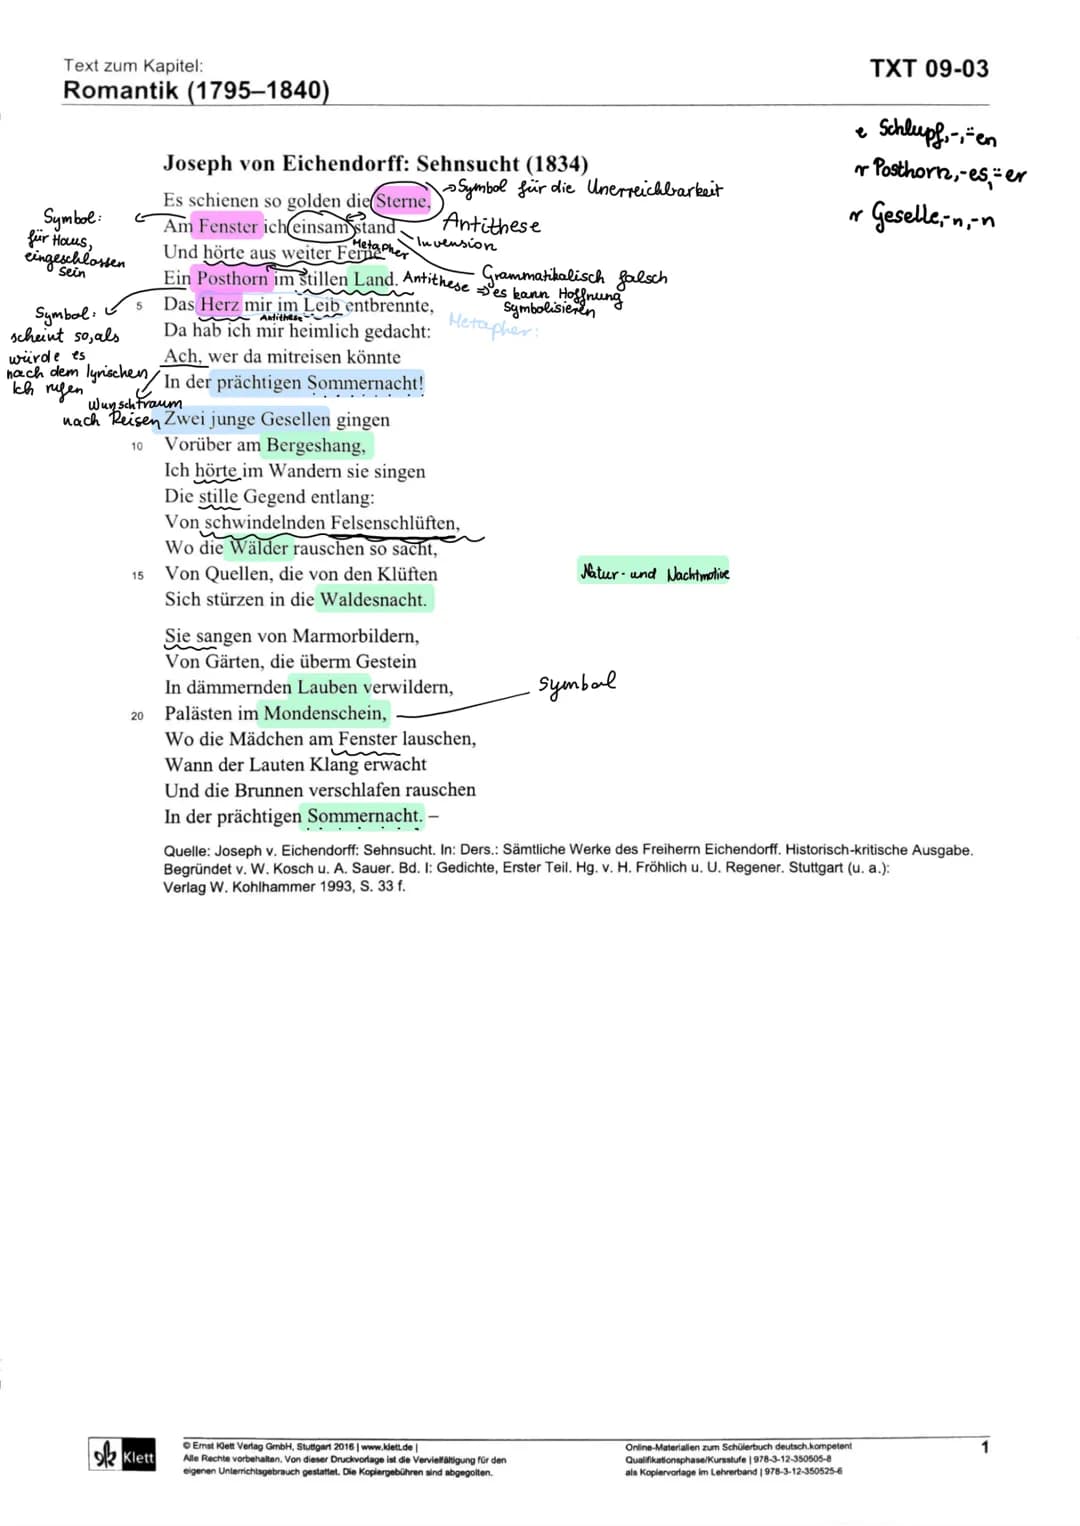 Text zum Kapitel:
Romantik (1795–1840)
TXT 09-03
e Schlupf,-,⸚en
r Posthorn,-es,⸚er
r Geselle,-n,-n
Joseph von Eichendorff: Sehnsucht (1834)
Es schienen so golden die Sterne,
→Symbol für die Unerreichbarkeit
Am Fenster ich einsam stand
Antithese
Invension
Symbol:
für Haus,
eingeschlossen
sein
Und hörte aus weiter Ferne
Metapher
Ein Posthorn im stillen Land.
Antithese
Grammatikalisch falsch
⇒ es kann Hoffnung
symbolisieren
5 Das Herz mir im Leib entbrennte,
Antithese
Metapher:
Symbol:
scheint so, als
würde es
nach dem lyrischen
Ich rufen
Da hab ich mir heimlich gedacht:
Ach, wer da mitreisen könnte
In der prächtigen Sommernacht!
Wunschtraum
nach Reisen
Zwei junge Gesellen gingen
10 Vorüber am Bergeshang,
Ich hörte im Wandern sie singen
Die stille Gegend entlang:
Von schwindelnden Felsenschlüften,
Wo die Wälder rauschen so sacht,
15 Von Quellen, die von den Klüften
Natur- und Nachtmotive
Sich stürzen in die Waldesnacht.
Sie sangen von Marmorbildern,
Von Gärten, die überm Gestein
In dämmernden Lauben verwildern,
Symbol
20 Palästen im Mondenschein,
Wo die Mädchen am Fenster lauschen,
Wann der Lauten Klang erwacht
Und die Brunnen verschlafen rauschen
In der prächtigen Sommernacht. –
Quelle: Joseph v. Eichendorff: Sehnsucht. In: Ders.: Sämtliche Werke des Freiherrn Eichendorff. Historisch-kritische Ausgabe.
Begründet v. W. Kosch u. A. Sauer. Bd. I: Gedichte, Erster Teil. Hg. v. H. Fröhlich u. U. Regener. Stuttgart (u. a.):
Verlag W. Kohlhammer 1993, S. 33 f.
Klett
© Ernst Klett Verlag GmbH, Stuttgart 2016 | www.klett.de |
Alle Rechte vorbehalten. Von dieser Druckvorlage ist die Vervielfältigung für den
eigenen Unterrichtsgebrauch gestattet. Die Kopiergebühren sind abgegolten.
Online-Materialien zum Schülerbuch deutsch.kompetent
Qualifikationsphase/Kursstufe | 978-3-12-350505-8
als Kopiervorlage im Lehrerband | 978-3-12-350525-6
1